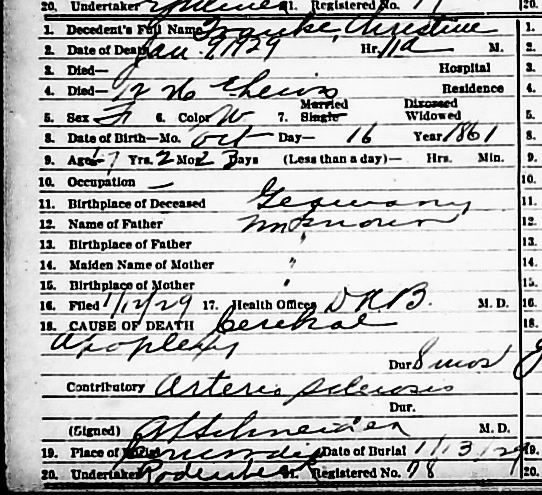 20. Undertaker 21. Registered No. 20.
1. Decedent's Full Name Franke, Christine 1.
2. Date of Death Jan. 9, 1929 Hr. 11a M. 2.
3. Died— Hospital 3.
4. Died— Residence 4.
5. Sex F 6. Color W 7. Married Single Divorced Widowed 5.
8. Date of Birth—Mo. Oct Day— 16 Year 1861 8.
9. Age 67 Yrs. 2 Mos 23 Days (Less than a day)— Hrs. Min. 9.
10. Occupation — 10.
11. Birthplace of Deceased Germany 11.
12. Name of Father Unknown 12.
13. Birthplace of Father " 13.
14. Maiden Name of Mother " 14.
15. Birthplace of Mother " 15.
16. Filed 1/12/29 17. Health Officer D R B. M. D. 16.
18. CAUSE OF DEATH Cerebral 18.
Apoplexy
Dur 8 mos
Contributory Arterio sclerosis
Dur.
(Signed) Schneider M. D.
19. Place of Burial Date of Burial 1/13/29 19.
20. Undertaker 21. Registered No. 78 20.